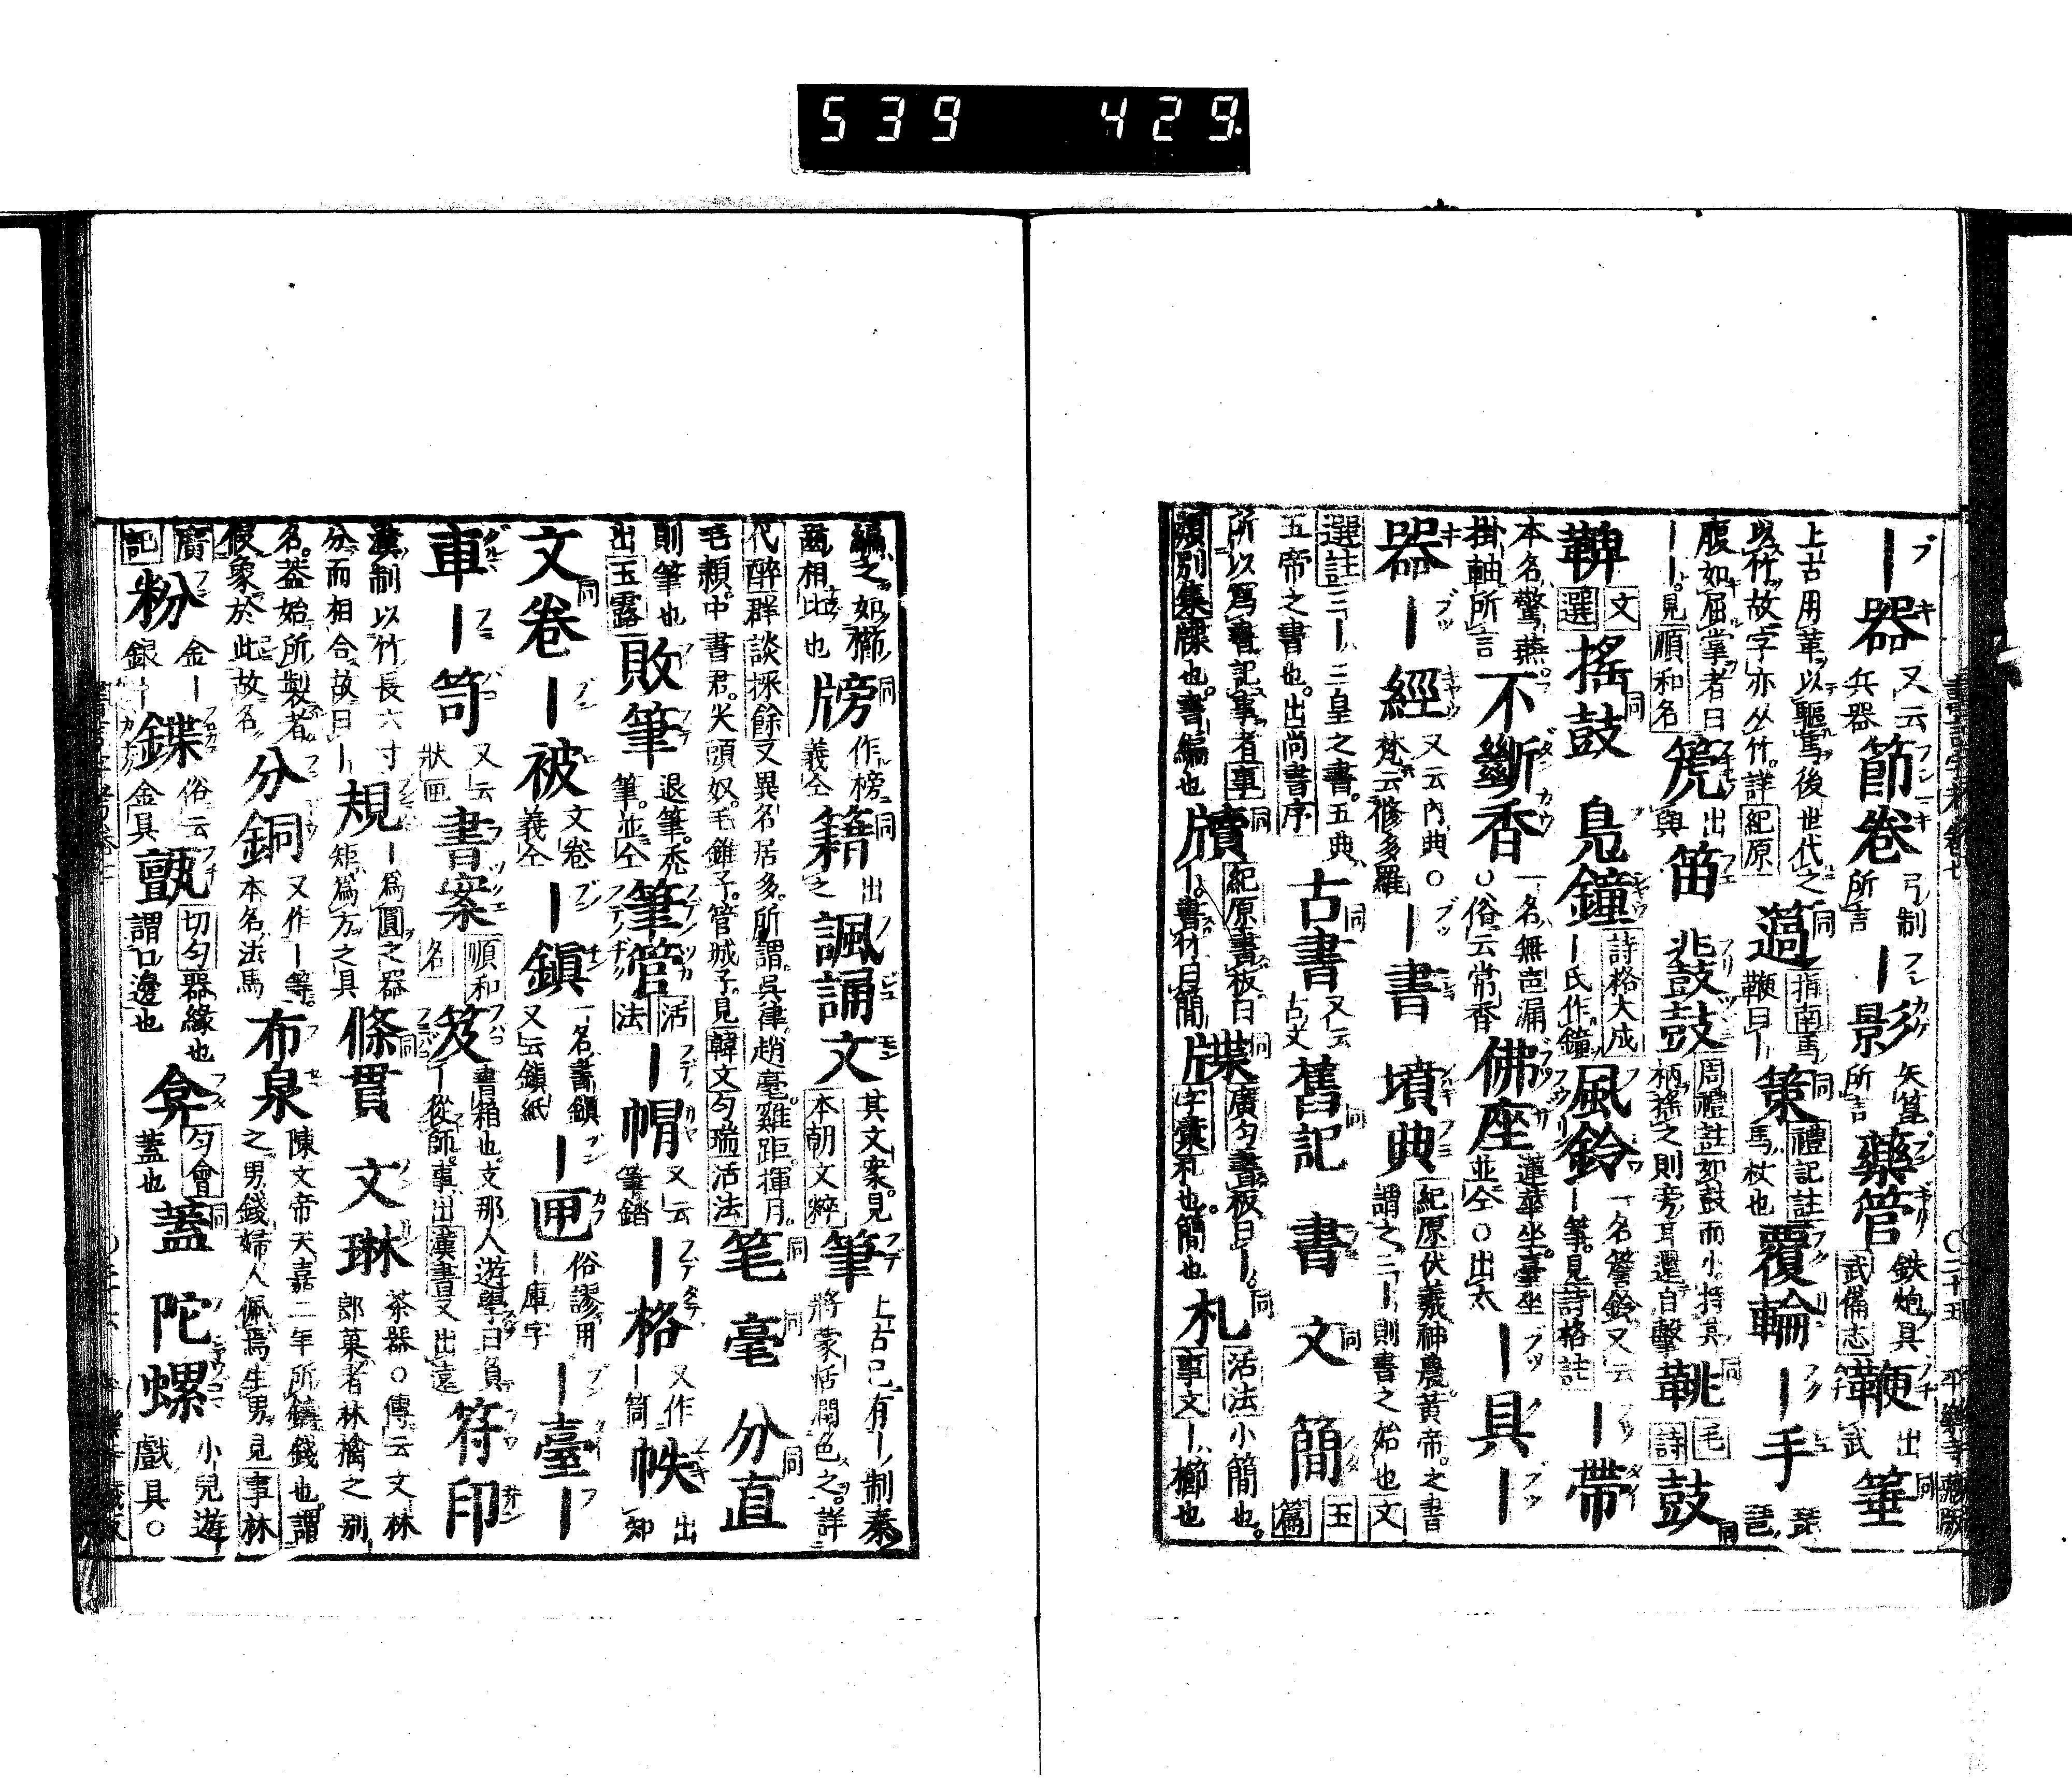 539 429
｜器 又云兵器 節卷 弓制所言 ｜影 矢筥所言 藥管 鉄炮具 武備志 鞭 出武 箠 同
上古用革以驅馬後世代之以竹故字亦从竹詳紀原 檛 同 指南馬鞭曰｜ 策 同 禮記註馬杖也 覆輪 ｜手 琵琶
腹如屈掌者曰｜｜見順和名 箎 出與 笛 鼗鼓 周禮註如鼓而小持其柄搖之則旁耳還自擊 鞉 同 毛詩 鼓 同
鞞 文選 搖鼓 同 鳧鐘 詩格大成｜氏作鐘 風鈴 一名簷鈴又云｜箏見詩格註 ｜帶
本名驚燕掛軸所言 不斷香 一名無畫漏○俗云常香 佛座 蓮華坐臺坐並仝○出太 ｜具 ｜
器 ｜經 又云內典○梵云修多羅 ｜書 墳典 紀原伏羲神農黃帝之書謂之三｜則書之始也文
選註三｜三皇之書五典五帝之書也出尚書序 古書 同 又云古文 舊記 同 書 文 同 簡 玉篇
所以爲書記事者事類別集牒也書編也 牘 同 紀原書板曰｜書材曰簡 牒 同 廣匀書板曰｜字彙札也簡也 札 同 活法小簡也事文｜櫛也
編之如櫛齒相比也 牓 同 作榜義仝 籍 同 出之 諷誦文 其文案見本朝文粹 筆 上古已有｜制秦將蒙恬潤色之詳
代醉群談採餘又異名居多所謂吳律趙毫雞距揮月毛穎中書君尖頭奴毛錐子管城子見韓文匀瑞活法 笔 同 毫 同 分直 同
則筆也出玉露 敗筆 退筆禿筆並仝 筆管 活法 ｜帽 又云筆踏 ｜格 又作｜筒 帙 出
文卷 同 ｜被 文卷義仝 ｜鎮 一名書鎮又云鎮紙 ｜匣 俗謬用｜庫字 ｜臺 ｜
車 ｜笥 又云狀匣 書案 順和名 笈 書箱也支那人遊學曰負｜從師事出漢書又出遠 符印
漢制以竹長六寸分而相合故曰｜ 規 ｜爲圓之器矩爲方之具 條貫 同 文琳 茶器○傳云文林郎菓者林檎之別
名蓋始所製者假象於此故名 分銅 又作｜等本名法馬 布泉 陳文帝天嘉二年所鑄錢也謂之男錢婦人佩焉生男見事林
廣記 粉 金｜銀｜ 鍱 俗云金具 甂 切匀器緣也謂口邊也 弇 匀會蓋也 蓋 同 陀螺 小兒遊戲具○